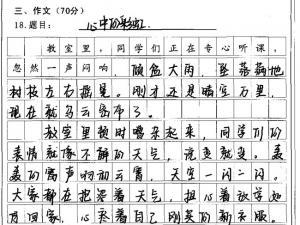 三、作文(70分)
18.题目: 心中的彩虹
教室里,同学们正在专心听课,
忽然一声闷响,倾盆大雨,坠落满地
树枝左右摇晃。刚才还是晴空万里,
现在就乌云密布了。
教室里顿时嘈杂起来,同学们的
表情就像不解的天气,说变就变。轰
轰的雷声响彻云霄,天空一闪一闪。
大家都在抱怨着天气,担心着放学如
何回家,心疼着自己刚买的新衣服。